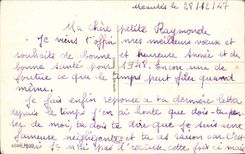 Meaulis, le 28/12/47
Ma chère petite Raymonde
Je viens t'offrir mes meilleurs voeux et
souhaits de bonne et heureuse Année et de
bonne santé pour 1948. Encore une de
foutue ce que le temps peut filer quand
même.
Je fais enfin réponse à ta dernière lettre
depuis le temps j'en ai honte que dois-tu penser
de moi, tu dois te dire que je suis une
fameuse négligente et tu as raison car c'est